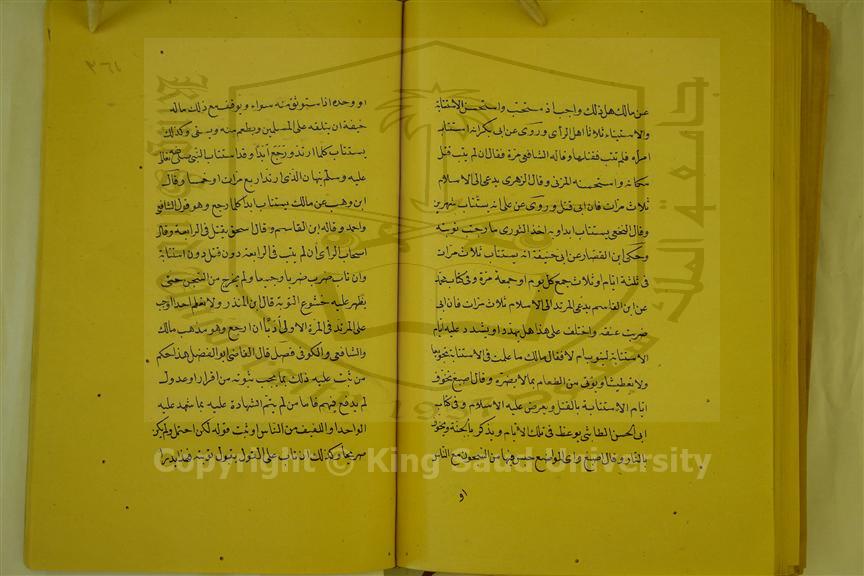 عن مالك هل ذلك واجب او مستحب واستحسن الاستتابة
والاستيناء ثلاثا اهل الرأى وروى عن ابى بكر انه استتاب
امرأة فلم تتب فقتلها وقاله الشافعى مرة فقال ان لم يتب قتل
مكانه واستحسنه المزنى وقال الزهرى يدعى الى الاسلام
ثلاث مرات فان ابى قتل وروى عن على انه يستتاب شهرين
وقال النخعى يستتاب ابدا وبه اخذ الثورى ما رجيت توبته
وحكى ابن القصار عن ابى حنيفة انه يستتاب ثلاث مرات
فى ثلثة ايام او ثلاث جمع كل يوم او جمعة مرة وفى كتاب محمد
عن ابن القاسم يدعى المرتد الى الاسلام ثلاث مرات فان ابى
ضربت عنقه واختلف على هذا هل يهدد او يشدد عليه ايام
الاستتابة ليتوب ام لا فقال مالك ما علمت فى الاستتابة تجويعا
ولا تعطيشا ويؤتى من الطعام بما لا يضره وقال اصبغ يخوف
ايام الاستتابة بالقتل ويعرض عليه الاسلام وفى كتاب
ابى الحسن الطابثى يوعظ فى تلك الايام ويذكر بالجنة ويخوف
بالنار وقال اصبغ واى المواضع حبس فيها من السجون مع الناس
او
٣٦١
او وحده اذا استوثق منه سواء ويوقف مع ذلك ماله
خيفة ان يتلفه على المسلمين ويطعم منه ويسقى وكذلك
يستتاب كلما ارتد ورجع ابدا وقد استتاب النبى صلى الله
عليه وسلم نبهان الذى ارتد اربع مرات او خمسا وقال
ابن وهب عن مالك يستتاب ابدا كلما رجع وهو قول الشافعى
واحمد وقاله ابن القاسم وقال سحق يقتل فى الرابعة وقال
اصحاب الرأى ان لم يتب فى الرابعة قتل دون استتابة
وان تاب ضرب ضربا وجيعا ولم يخرج من السجن حتى
يظهر عليه خشوع التوبة قال ابن المنذر ولا نعلم احدا اوجب
على المرتد فى المرة الاولى ادبا اذا رجع وهو مذهب مالك
والشافعى والكوفى فصل قال القاضى ابو الفضل هذا حكم
من ثبت عليه ذلك بما يجب ثبوته من اقرار او عدول
لم يدفع فيهم فاما من لم يتم الشهادة عليه بما شهد عليه
الواحد او اللفيف من الناس او ثبت قوله لكن احتمل ولم يكن
صريحا وكذلك ان تاب على القول بقبول توبته فهذا يدرا
جامعة الملك سعود
1957
Copyright © King Saud University